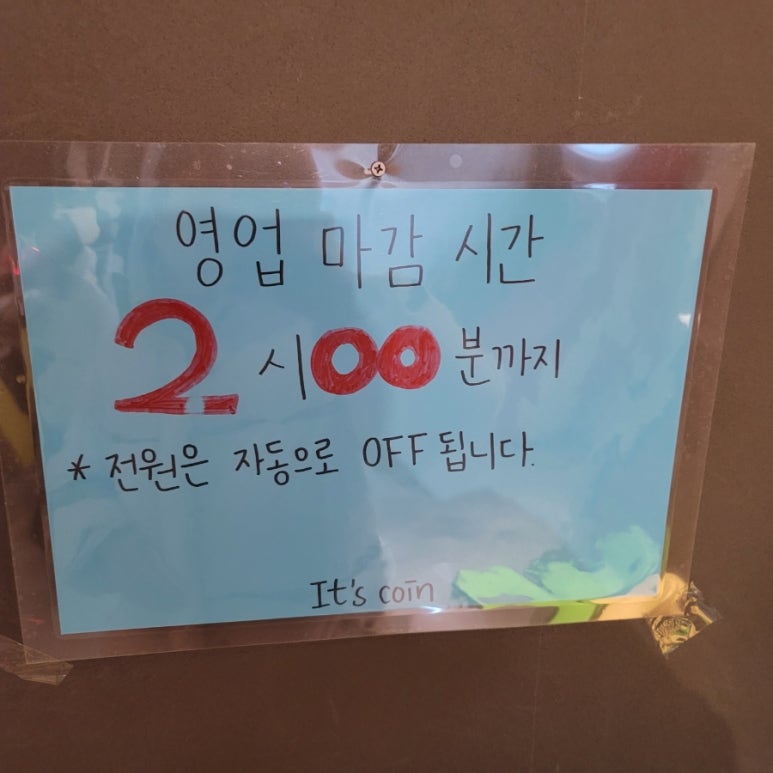 영업 마감 시간
2시00분까지
* 전원은 자동으로 OFF 됩니다.
It's coin